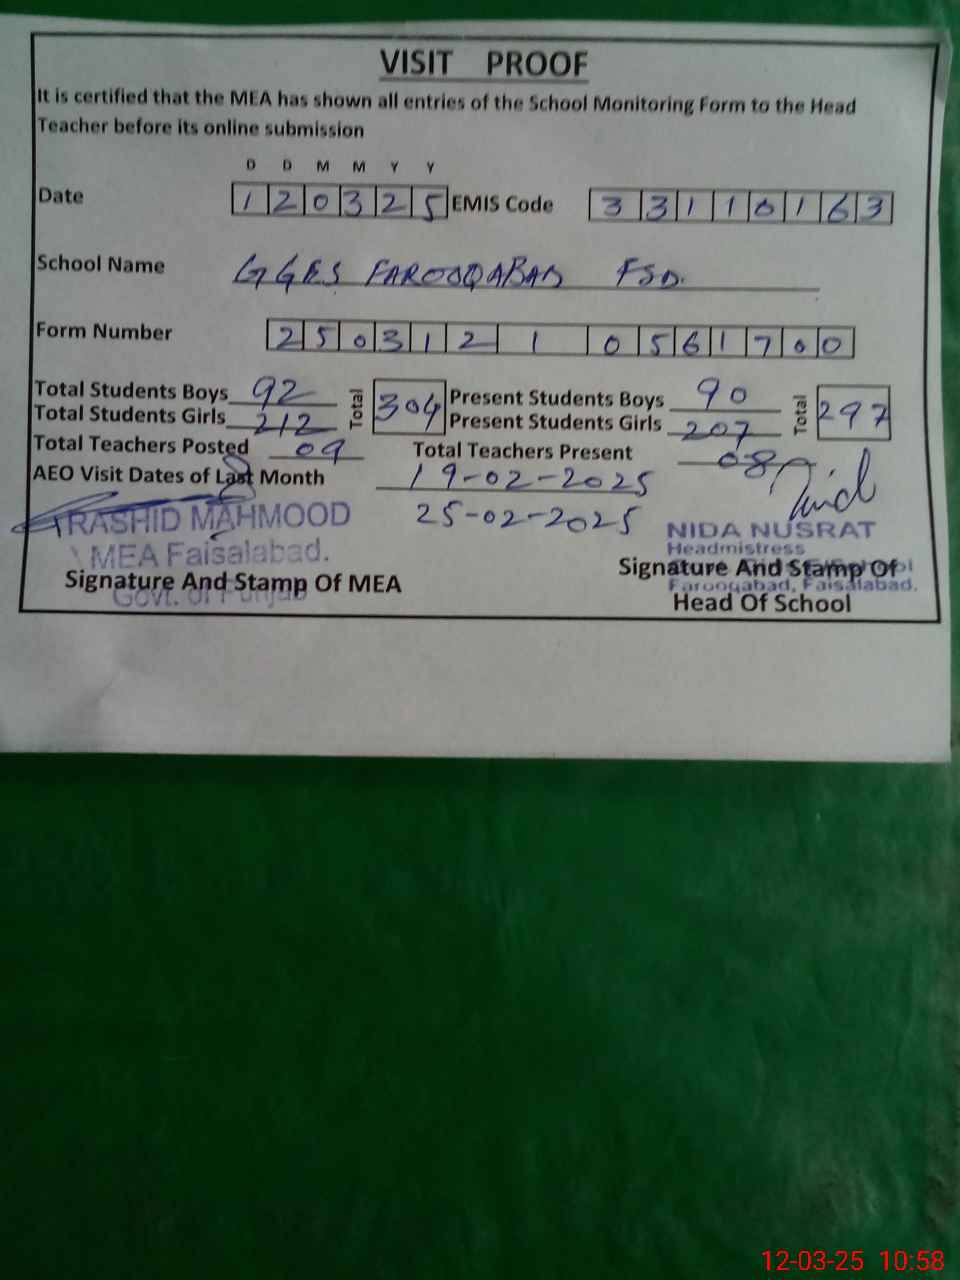 VISIT PROOF
It is certified that the MEA has shown all entries of the School Monitoring Form to the Head
Teacher before its online submission
D D M M Y Y
Date 1 2 0 3 2 5 EMIS Code 3 3 1 1 0 1 6 3
School Name GGES FAROOQABAD FSD.
Form Number 2 5 0 3 1 2 1 0 5 6 1 7 0 0
Total Students Boys 92 Total 304 Present Students Boys 90 Total 297
Total Students Girls 212 Present Students Girls 207
Total Teachers Posted 09 Total Teachers Present 08
AEO Visit Dates of Last Month 19-02-2025
25-02-2025
RASHID MAHMOOD
MEA Faisalabad.
Govt. of Punjab
Signature And Stamp Of MEA
NIDA NUSRAT
Headmistress
Farooqabad, Faisalabad.
Signature And Stamp Of
Head Of School
12-03-25 10:58